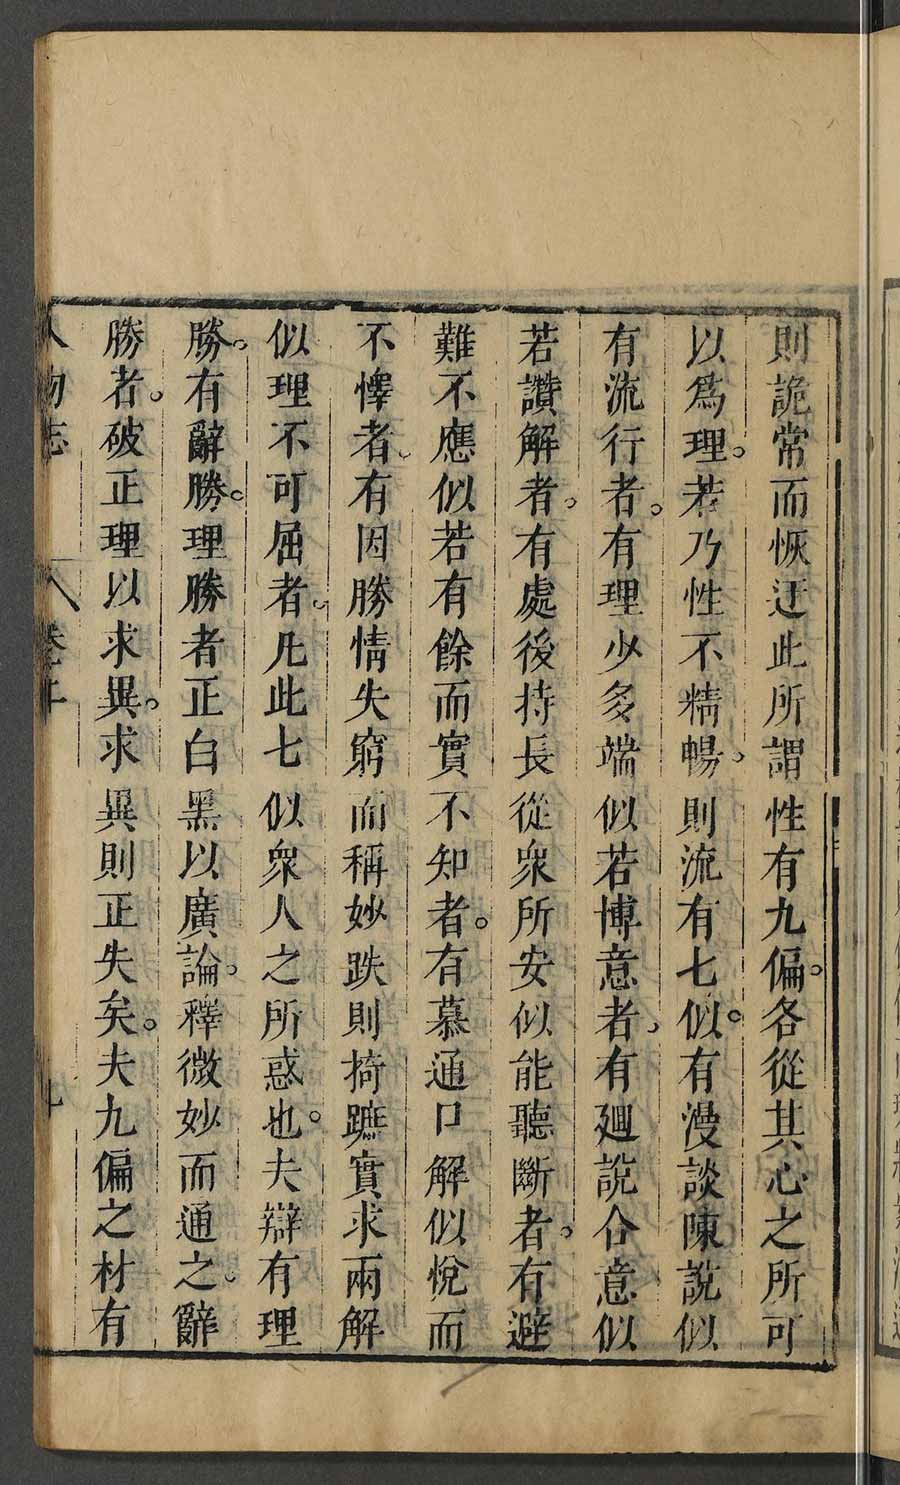 則詭常而恢迂此所謂性有九偏。各從其心之所可
以爲理。若乃性不精暢。則流有七似。有漫談陳說似
有流行者。有理少多端似若博意者。有廻說合意似
若讚解者。有處後持長從衆所安似能聽斷者。有避
難不應似若有餘而實不知者。有慕通口解似悅而
不懌者。有因勝情失窮而稱妙跌則掎蹠實求兩解
似理不可屈者。凡此七似衆人之所惑也。夫辯有理
勝。有辭勝。理勝者正白黑以廣論。釋微妙而通之。辭
勝者。破正理以求異。求異則正失矣。夫九偏之材有
人物志